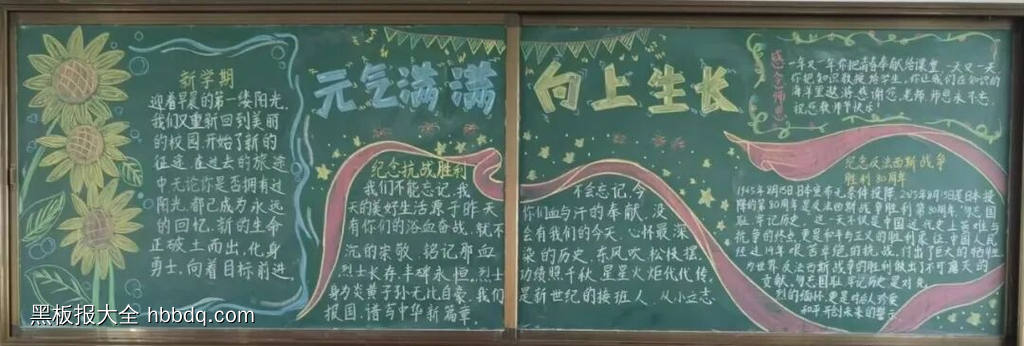 新学期
迎着早晨的第一缕阳光,
我们又重新回到美丽
的校园,开始了新的
征途,在过去的旅途
中无论你是否拥有过
阳光,都已成为永远
的回忆,新的生命
正破土而出,化身
勇士,向着目标前进
元气满满 向上生长
纪念抗战胜利
我们不能忘记,我
天的美好生活源于昨天
有你们的浴血奋战,就不
沉的崇敬,铭记那血
烈士长存,丰碑永恒,烈士
身为炎黄子孙无比自豪,我们
报国,谱写中华新篇章。
不会忘记,今
你们血与汗的奉献,没
会有我们的今天,心怀最深
染的历史,东风吹,松枝摆,
功绩照千秋,星星火炬代代传,
是新世纪的接班人,从小立志,
感念师恩
一年又一年,你把青春奉献给课堂,一天又一天
你把知识教授给学生,你让我们在知识的
海洋里遨游,感谢您,老师,师恩永不忘,
祝您教师节快乐!
纪念反法西斯战争
胜利80周年
1945年8月15日日本宣布无条件投降,2025年8月15日是日本投
降的第80周年是反法西斯战争胜利第80周年,勿忘国
耻,牢记历史,
抗争的终点,更是和平与正义的胜利
为世界反法西斯战争的胜利做出了不可磨灭的
贡献,勿忘国耻,牢记历史是对先
烈的缅怀,更是对后人珍爱
和平开创未来的警示
黑板报大全 hbbdq.com